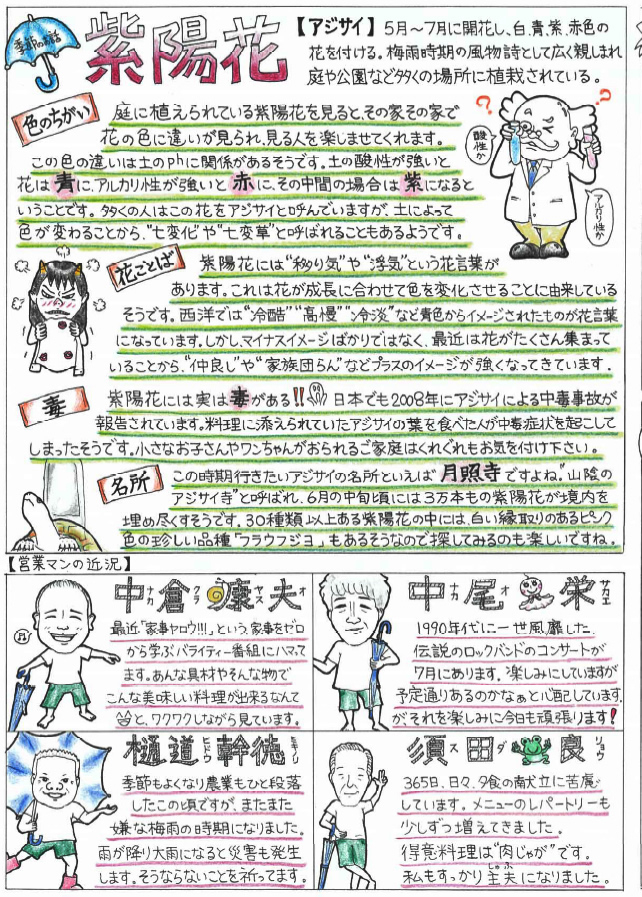 季節のお話
紫陽花
【アジサイ】5月〜7月に開花し、白、青、紫、赤色の
花を付ける。梅雨時期の風物詩として広く親しまれ
庭や公園など多くの場所に植栽されている。
色のちがい
庭に植えられている紫陽花を見ると、その家その家で
花の色に違いが見られ、見る人を楽しませてくれます。
この色の違いは土のphに関係があるそうです。土の酸性が強いと
花は青に、アルカリ性が強いと赤に、その中間の場合は紫になると
いうことです。多くの人はこの花をアジサイと呼んでいますが、土によって
色が変わることから、"七変化"や"七変草"と呼ばれることもあるようです。
?
?
酸性か
アルカリ性か
花ことば
紫陽花には"移り気"や"浮気"という花言葉が
あります。これは花が成長に合わせて色を変化させることに由来している
そうです。西洋では"冷酷""高慢""冷淡"など青色からイメージされたものが花言葉
になっています。しかし、マイナスイメージばかりではなく、最近は花がたくさん集まって
いることから、"仲良し"や"家族団らん"などプラスのイメージが強くなってきています。
毒
紫陽花には実は毒がある!! 日本でも2008年にアジサイによる中毒事故が
報告されています。料理に添えられていたアジサイの葉を食べた人が中毒症状を起こして
しまったそうです。小さなお子さんやワンちゃんがおられるご家庭はくれぐれもお気を付け下さい。
名所
この時期行きたいアジサイの名所といえば月照寺ですよね。"山陰の
アジサイ寺"と呼ばれ、6月の中旬頃には3万本もの紫陽花が境内を
埋め尽くすそうです。30種類以上ある紫陽花の中には、白い縁取りのあるピンク
色の珍しい品種「フラウフジヨ」もあるそうなので探してみるのも楽しいですね。
【営業マンの近況】
中倉康夫
ナカ クラ ヤス オ
最近「家事ヤロウ!!!」という家事をゼロ
から学ぶバラエティー番組にハマって
ます。あんな具材やそんな物で
こんな美味しい料理が出来るなんて
とワクワクしながら見ています。
中尾栄
ナカ オ サカエ
1990年代に一世風靡した
伝説のロックバンドのコンサートが
7月にあります。楽しみにしていますが
予定通りあるのかなぁと心配しています。
がそれを楽しみに今日も頑張ります!
樋道幹徳
ヒ ドウ ミキ ノリ
季節もよくなり農業もひと段落
したこの頃ですが、またまた
嫌な梅雨の時期になりました。
雨が降り大雨になると災害も発生
します。そうならないことを祈ってます。
須田良
ス ダ リョウ
365日、日々、夕食の献立に苦慮
しています。メニューのレパートリーも
少しずつ増えてきました。
得意料理は"肉じゃが"です。
私もすっかり主夫になりました。
しゅふ